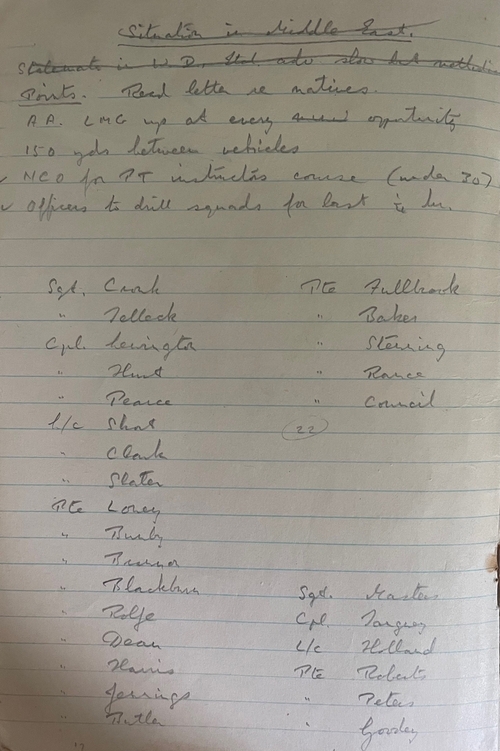 Situation in Middle East.
Statements in W.D. Std. adv slow but methodical
Points. Read letter re natives.
A.A. LMG up at every opportunity
150 yds between vehicles
✓ NCO for PT instructors course (under 30)
✓ Officers to drill squads for last ¼ hr.
Sgt. Cronk
" Tellack
Cpl. Levington
" Hunt
" Pearce
L/c Short
" Clark
" Slater
Pte Loney
" Bunby
"
" Blackburn
" Rolfe
" Dean
" Harris
" Jennings
" Butler
Pte Fullbrook
" Baker
" Sterring
" Rance
" Council
(22)
Sgt. Masters
Cpl. Tanguey
L/c Holland
Pte Roberts
" Peters
" Gooday